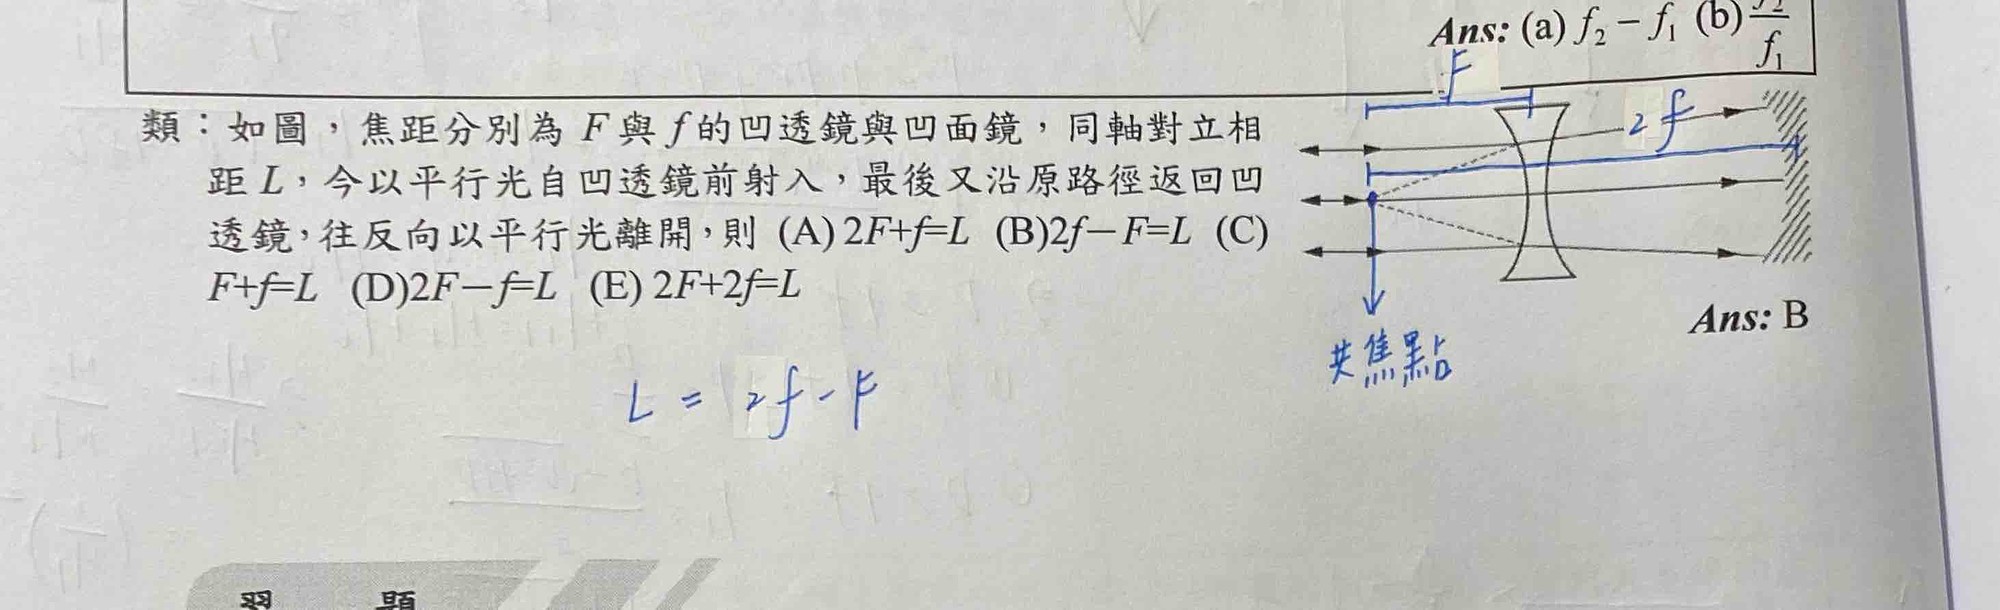 Ans: (a) f₂ − f₁ (b) f₂/f₁
F
2f
類：如圖，焦距分別為 F 與 f 的凹透鏡與凹面鏡，同軸對立相
距 L，今以平行光自凹透鏡前射入，最後又沿原路徑返回凹
透鏡，往反向以平行光離開，則 (A) 2F+f=L (B)2f－F=L (C)
F+f=L (D)2F－f=L (E) 2F+2f=L
Ans: B
共焦點
L = 2f - F
習 題